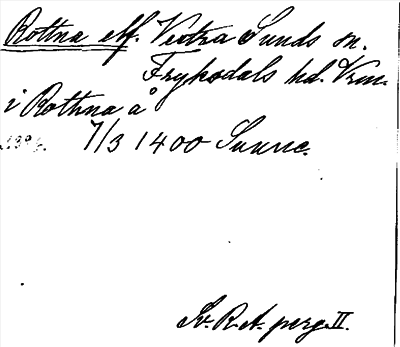 Rottna elf. Vestra Sunds sn.
Fryksdals hd. Vrm.
i Rothna å
7/3 1400 Sunne.
Sv. R.A. perg. II.